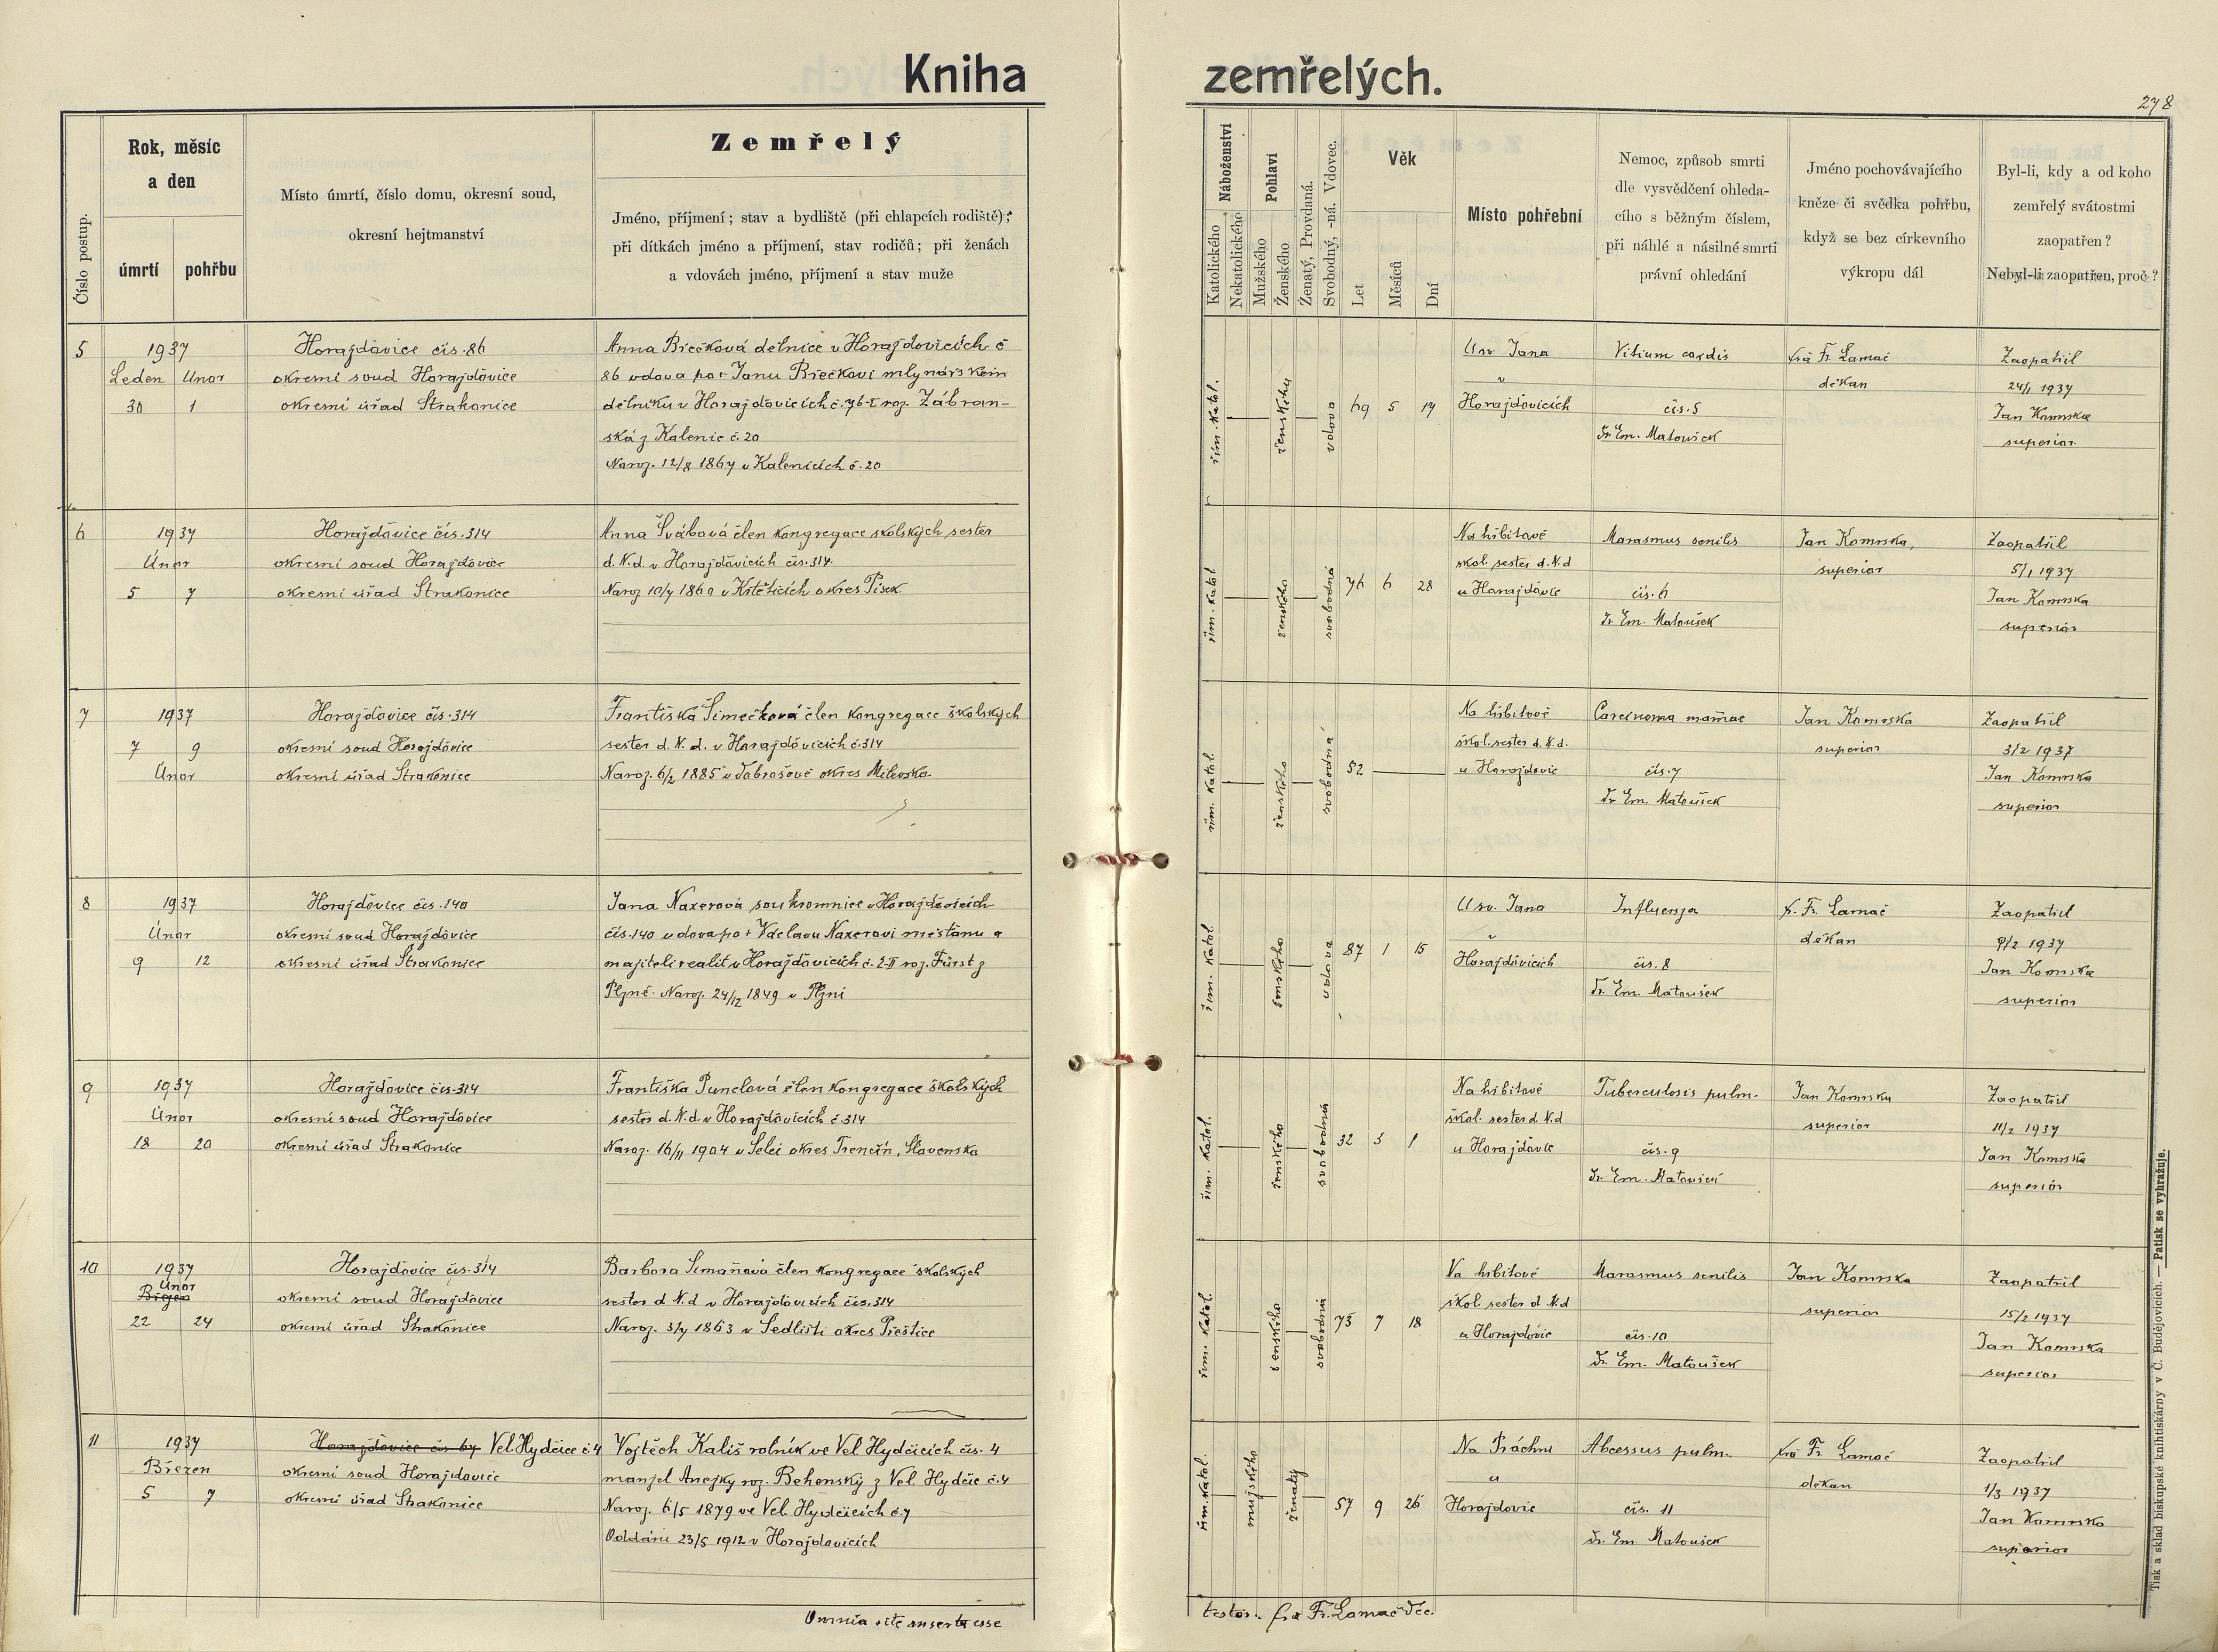 Kniha zemřelých.
278
Číslo postup.
Rok, měsíc
a den
úmrtí
pohřbu
Místo úmrtí, číslo domu, okresní soud,
okresní hejtmanství
Zemřelý
Jméno, příjmení; stav a bydliště (při chlapcích rodiště);
při dítkách jméno a příjmení, stav rodičů; při ženách
a vdovách jméno, příjmení a stav muže
Náboženství
Katolického
Nekatolického
Pohlaví
Mužského
Ženského
Ženatý, Provdaná.
Svobodný, -ná. Vdovec.
Věk
Let
Měsíců
Dní
Místo pohřební
Nemoc, způsob smrti
dle vysvědčení ohleda-
cího s běžným číslem,
při náhlé a násilné smrti
právní ohledání
Jméno pochovávajícího
kněze či svědka pohřbu,
když se bez církevního
výkropu dál
Byl-li, kdy a od koho
zemřelý svátostmi
zaopatřen?
Nebyl-li zaopatřen, proč?
5
1937
Leden Únor
30 1
Horažďovice čís. 86
okresní soud Horažďovice
okresní úřad Strakonice
Anna Břečková dělnice v Horažďovicích č
86 vdova po + Janu Břečkovi mlynářském
dělníku v Horažďovicích č. 76-I roz. Zábran-
ská z Kalenic č. 20
Naroz. 12/8 1867 v Kalenicích č. 20
řím. katol.
ženského
vdova
69 5 17
U sv. Jana
v
Horažďovicích
Vitium cordis
čís. 5
Dr Em. Matoušek
fra Fr. Lamač
děkan
Zaopatřil
24/1 1937
Jan Komrska
superior
6
1937
Únor
5 7
Horažďovice čís. 314
okresní soud Horažďovice
okresní úřad Strakonice
Anna Švábová člen kongregace školských sester
d. N. d. v Horažďovicích čís. 314.
Naroz 10/7 1860 v Krtěticích okres Písek.
řím. katol
ženského
svobodná
76 6 28
Na hřbitově
škol. sester d. N. d
u Horažďovic
Marasmus senilis
čís. 6
Dr. Em. Matoušek
Jan Komrska,
superior
Zaopatřil
5/1 1937
Jan Komrska
superior
7
1937
7 9
Únor
Horažďovice čís. 314
okresní soud Horažďovice
okresní úřad Strakonice
Františka Šimečková člen kongregace školských
sester d. N. d. v Horažďovicích č. 314
Naroz. 6/2 1885 v okres Milevsko.
řím. katol.
ženského
svobodná
52
Na hřbitově
škol. sester d. N. d.
u Horažďovic
Carcinoma mammae
čís. 7
Dr Em. Matoušek
Jan Komrska
superior
Zaopatřil
3/2 1937
Jan Komrska
superior
8
1937
Únor
9 12
Horažďovice čís. 140
okresní soud Horažďovice
okresní úřad Strakonice
Jana Naxerová soukromnice v Horažďovicích
čís. 140 vdova po + Václavu Naxerovi měšťanu a
majiteli realit v Horažďovicích č. 2-II roz. Fürst z
Plzně. Naroz. 24/12 1849 v Plzni
řím. katol
ženského
vdova
87 1 15
U sv. Jana
v
Horažďovicích
Influenza
čís. 8
Dr. Em. Matoušek
f. Fr. Lamač
děkan
Zaopatřil
9/2 1937
Jan Komrska
superior
9
1937
Únor
18 20
Horažďovice čís. 314
okresní soud Horažďovice
okresní úřad Strakonice
Františka Punčlová člen kongregace školských
sester d. N. d v Horažďovicích č. 314
Naroz. 16/11 1904 v Selci okres Trenčín, Slovensko
řím. katol.
ženského
svobodná
32 3 1
Na hřbitově
škol. sester d N. d
u Horažďovic
Tuberculosis pulm.
čís. 9
Dr. Em. Matoušek
Jan Komrska
superior
Zaopatřil
11/2 1937
Jan Komrska
superior
10
1937
Únor
Březen
22 24
Horažďovice čís. 314
okresní soud Horažďovice
okresní úřad Strakonice
Barbora Šimanová člen kongregace školských
sester d N. d v Horažďovicích čís. 314
Naroz. 3/7 1863 v Sedlišti okres Přeštice
řím. katol.
ženského
svobodná
73 7 18
Na hřbitově
škol. sester d N. d
u Horažďovic
Marasmus senilis
čís. 10
Dr. Em. Matoušek
Jan Komrska
superior
Zaopatřil
15/2 1937
Jan Komrska
superior
11
1937
Březen
5 7
Horažďovice čís 67 Vel. Hydčice č. 4
okresní soud Horažďovice
okresní úřad Strakonice
Vojtěch Kališ rolník ve Vel. Hydčicích čís. 4
manžel Anežky roz. Behenský z Vel. Hydčic č. 4
Naroz. 6/5 1879 ve Vel. Hydčicích č. 7
Oddáni 23/5 1912 v Horažďovicích
řím. katol.
mužského
ženatý
57 9 26
Na Práchni
u
Horažďovic
Abcessus pulm.
čís. 11
Dr. Em. Matoušek
fra Fr. Lamač
děkan
Zaopatřil
1/3 1937
Jan Komrska
superior
Omnia rite inserta esse
testor: fra Fr. Lamač děk.
Tisk a sklad biskupské knihtiskárny v Č. Budějovicích. — Patisk se vyhražuje.